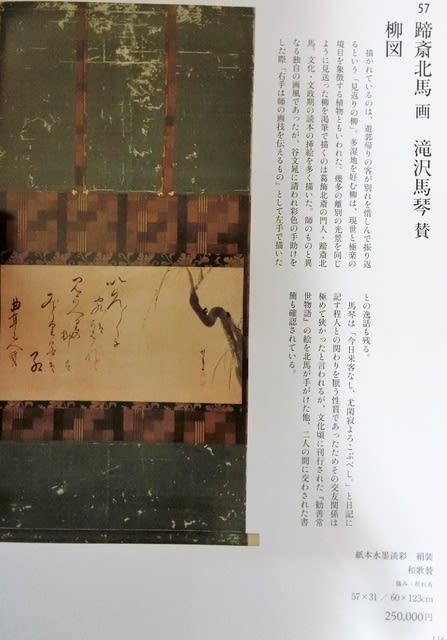 57
蹄斎北馬 画　滝沢馬琴 賛
柳図
描かれているのは、遊郭帰りの客が別れを惜しんで振り返
るという「見返りの柳」。多湿地を好む柳は、現世と極楽の
境目を象徴する植物ともいわれた。幾多の離別の光景を同じ
ように見送った柳を渇筆で描くのは葛飾北斎の門人・蹄斎北
馬。文化・文政期の読本の挿絵を多く描いた。師のものと異
なる独自の画風であったが、谷文晁に請われ彩色の手助けを
した際「右手は師の画技を伝えるもの」として左手で描いた
との逸話も残る。
馬琴は「今日来客なし、尤閑寂よろこぶべし。」と日記に
記す程人との関わりを厭う性質であったためその交友関係は
極めて狭かったと言われるが、文化頃に刊行された『勧善常
世物語』の絵を北馬が手がけた他、二人の間に交わされた書
簡も確認されている。
紙本水墨淡彩　絹装
和歌賛
傷み・折れ有
57×31 ／ 60×123cm
250,000円